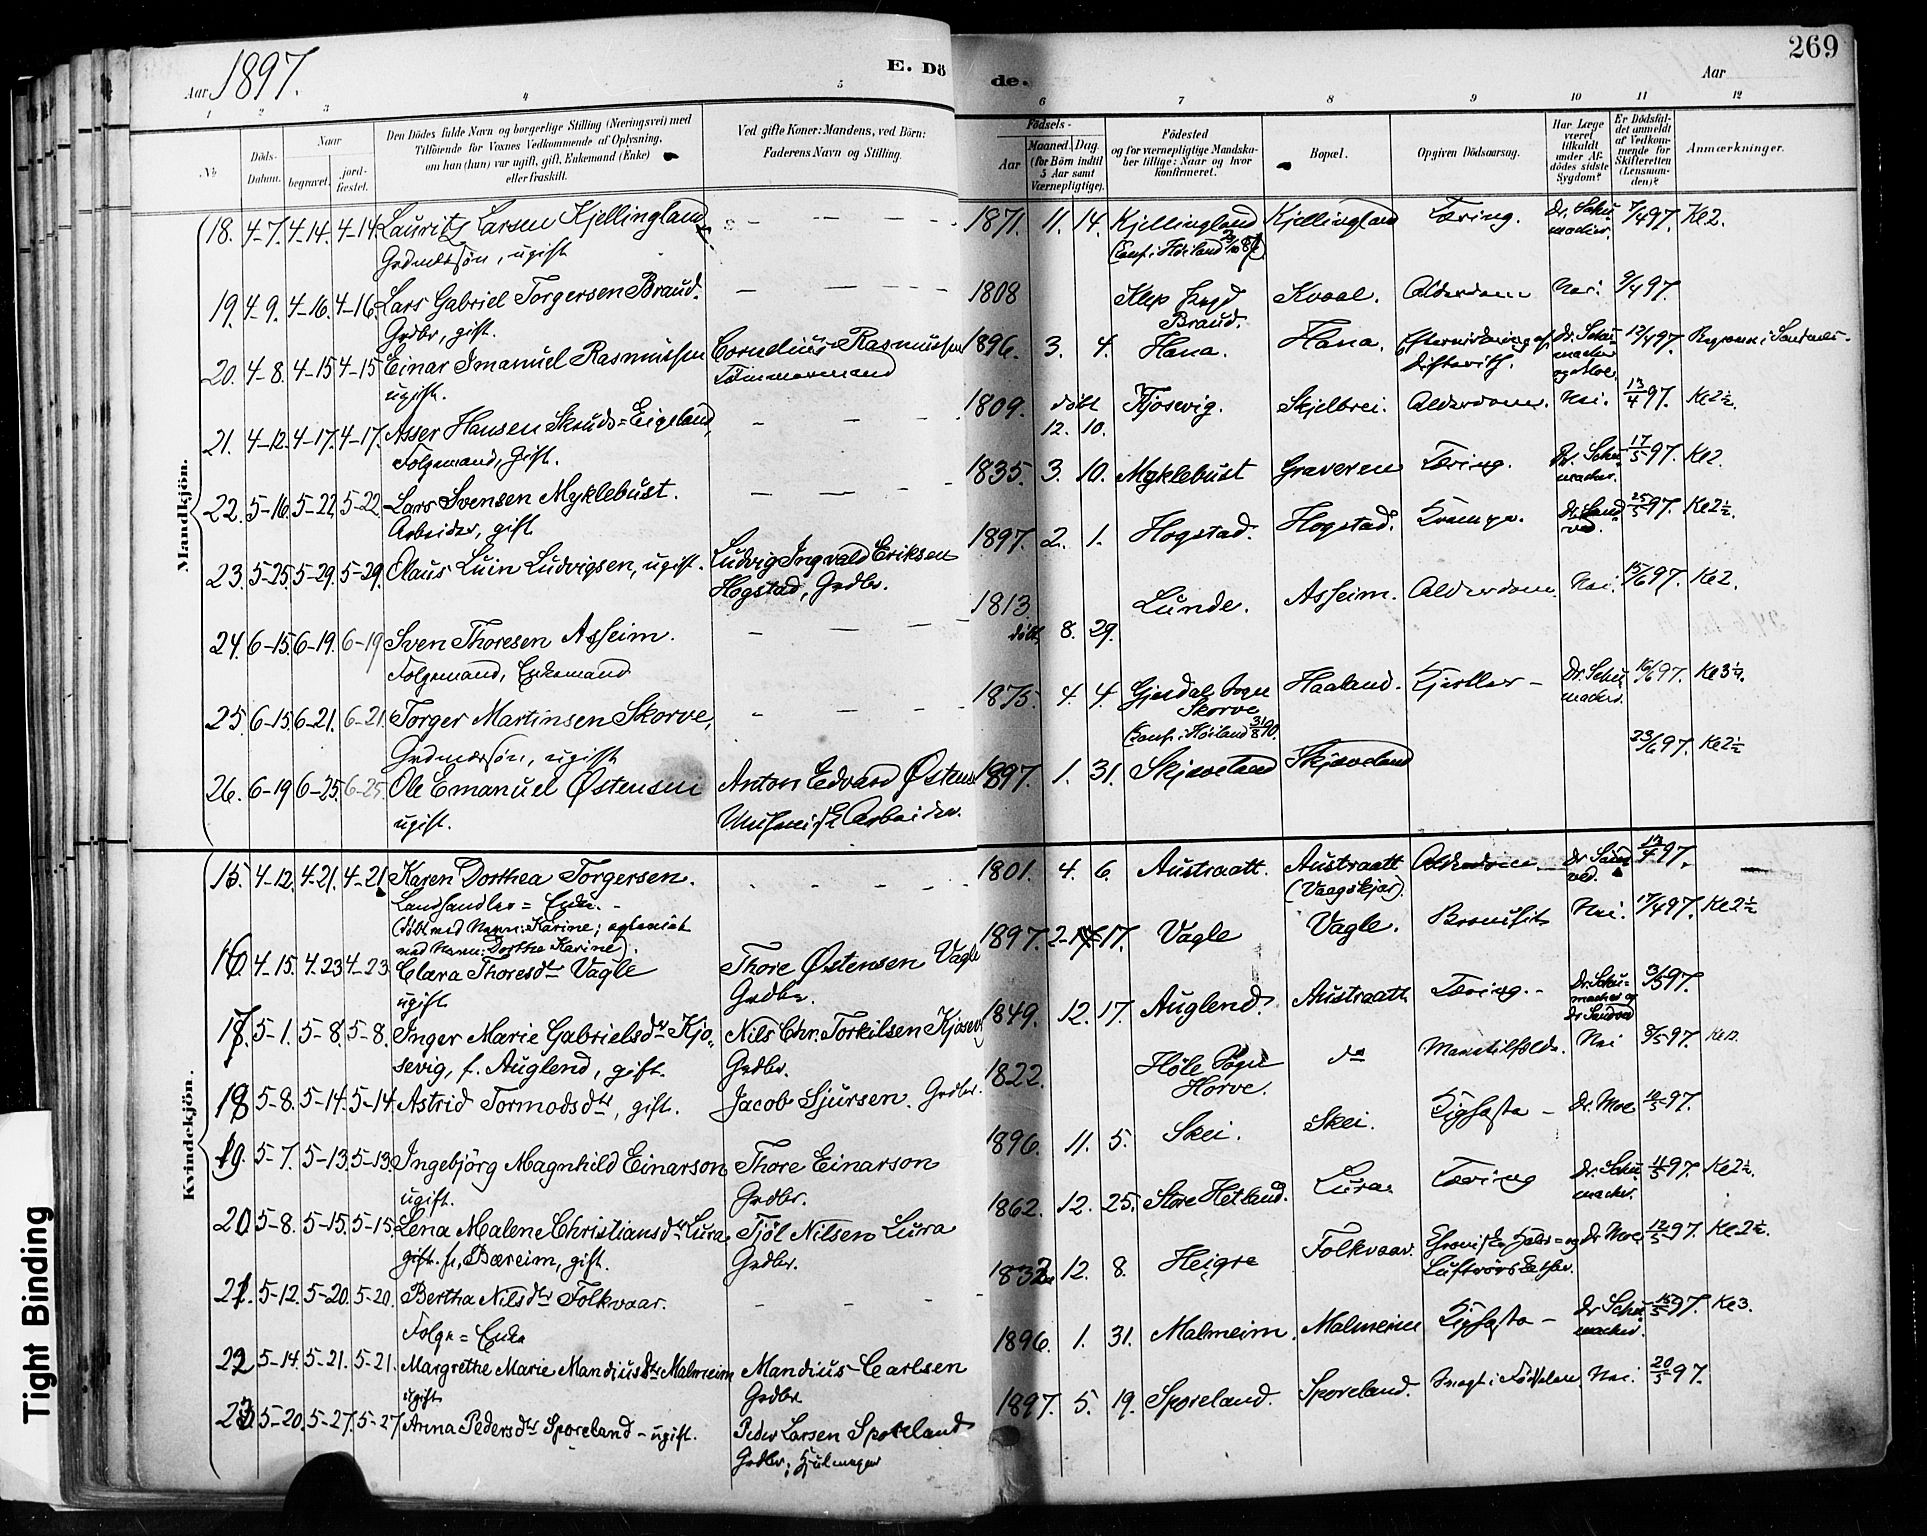 269
Aar 1897.
E. Døde.
Aar
1 2 3 4 5 6 7 8 9 10 11 12
No
Døds-Datum.
Naar
begravet.
jord-fæstet.
Den Dødes fulde Navn og borgerlige Stilling (Næringsvei) med
Tilføiende for Voxnes Vedkommende af Oplysning,
om han (hun) var ugift, gift, Enkemand (Enke)
eller fraskilt.
Ved gifte Koner: Mandens, ved Børn:
Faderens Navn og Stilling.
Fødsels-
Aar
Maaned. Dag.
(for Børn indtil
5 Aar samt
Værnepligtige).
Fødested
og for værnepligtige Mandska-
ber tillige: Naar og hvor
konfirmeret.
Bopæl.
Opgiven Dødsaarsag.
Har Læge
været
tilkaldt
under Af-
dødes sidste
Sygdom?
Er Dødsfal-
det anmeldt
af Vedkom-
mende for
Skifteretten
(Lensman-
den)?
Anmærkninger.
Mandkjøn.
18. 4-7. 4-14. 4-14 Lauritz Larsen Kjellingland 1871. 11. 14. Kjellingland Kjellingland Tæring. Dr. Schu 7/4 97. Ke 2.
Grdmdssøn, ugift (Conf. i Høiland macher.
19. 4-9. 4-16. 4-16. Lars Gabriel Torgersen Braud. 1808 Klep Sogn Kvaal. Alderdom Nei. 9/4 97.
Grdbr, gift. Braud.
20. 4-8. 4-15 4-15 Einar Imanuel Rasmussen Cornelius Rasmussen 1896. 3. 4. Hana. Hana. Eftervirkning af Dr. Schu 12/4 97.
ugift. Tømmermand Difterith. macher og Moe.
21. 4-12. 4-17. 4-17. Asser Hansen Skruds=Eigeland, 1809. døbt 12. 10. Kjosevig. Skjelbrei. Alderdom. Nei. 13/4 97. Ke 2½.
Folgemand, gift.
22. 5-16. 5-22 5-22 Lars Svensen Myklebust. 1835. 3. 10. Myklebust Graveren Tæring. Dr. Schu macher. 17/5 97. Ke 2.
Arbeider, gift
23. 5-25. 5-29. 5-29. Olaus Luin Ludvigsen, ugift. Ludvig Ingvald Eriksen 1897. 2. 1. Hogstad. Hogstad. Krampe. Dr. Sand ved. 25/5 97. Ke 2½.
Hogstad, Grdbr.
24. 6-15. 6-19. 6-19 Sven Thoresen Asheim. 1813 døbt 8. 29. Lunde. Asheim. Alderdom. Nei. 15/6 97. Ke 2.
Folgemand, Enkemand
25. 6-15. 6-21. 6-21. Torger Martinsen Skorve, 1875. 4. 4. Gjesdal Sogn Haaland. Dr. Schu macher. 16/6 97.
Grdmdssøn, ugift Skorve
(Conf. i Høiland 31/8 90.
26. 6-19 6-25. 6-25. Ole Emanuel Østensen Anton Edvard Østensen 1897. 1. 31. Skjæveland Skjæveland 23/6 97. Ke 2½
ugift. Arbeider.
Kvindekjøn.
15. 4-12. 4-21. 4-21. Karen Dorthea Torgersen. 1801. 4. 6. Austraatt. Austraatt Alderdom Dr. Sand ved. 12/4 97.
Landhandler=Enke. (Vaagskjær).
(døbt med Navn: Karine;
med Navn: Dorthea Karine).
16. 4-15. 4-23 4-23. Clara Thoresdtr Vagle Thore Østensen Vagle 1897. 2. 17. Vagle Vagle. Nei. 17/4 97. Ke 2½
ugift Grdbr.
17. 5-1. 5-8. 5-8. Inger Marie Gabrielsdtr Kjo- Nils Chr. Torkilsen Kjosevig 1849. 12. 17. Auglend. Austraatt Tæring. Dr. Schu- macher og Dr. Sandved 3/5 97.
sevig, f. Auglend, gift. Grdbr.
18 5-8. 5-14. 5-14. Astrid Tormodsdtr, gift. Jacob Sjursen. Grdbr. 1822. Høle Sogn do Nei 8/5 97.
Horve.
19. 5-7. 5-13. 5-13. Ingebjörg Magnhild Einarson Thore Einarson 1896. 11. 5. Skei. Skei. Kighoste Dr. Moe 10/5 97.
ugift. Grdbr.
20 5-8. 5-15. 5-15. Lena Malene Christiansdtr Lura, Tjöl Nilsen Lura 1862. 12. 25. Store Hetland. Lura. Tæring Dr. Schu macher. 11/5 97. Ke 2½.
gift. f. Bæreim, gift. Grdbr.
21. 5-12. 5-20. 5-20. Bertha Nilsdtr Folkvaar. 1832 12. 8. Heigre Folkvaar. Chronisk Hals= og Dr Moe 12/5 97. Ke 2½.
Folge=Enke
22 5-14. 5-21. 5-21. Margrethe Marie Mandiusdtr Malmeim Mandius Carlsen 1896. 1. 31. Malmeim. Malmeim Kighoste Dr Schu macher. 15/5 97. Ke 3.
ugift Grdbr
23 5-20. 5-27. 5-27. Anna Pedersdtr Sporeland - ugift. Peder Larsen Sporeland 1897. 5. 19. Sporeland. Sporeland. Svagt i Fødselen Nei. 20/5 97.
Grdbr, Hjulmager
Tight Binding